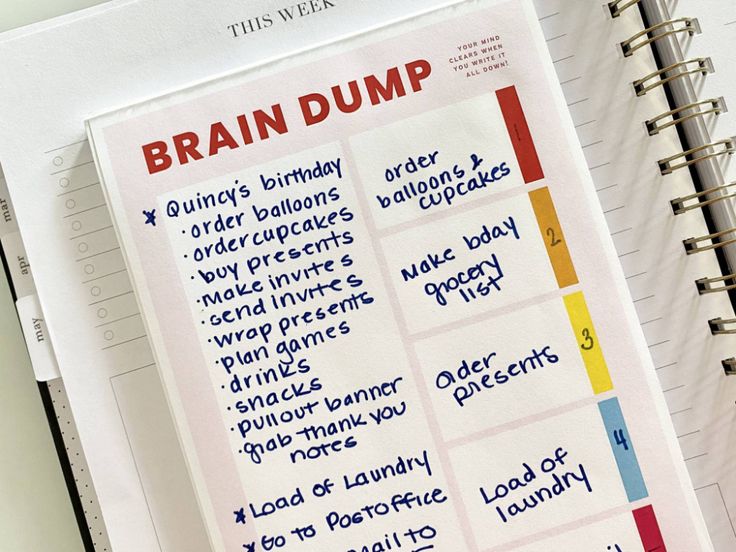 THIS WEEK
YOUR MIND
CLEARS WHEN
YOU WRITE IT
ALL DOWN!
BRAIN DUMP
* Quincy's birthday
• order balloons
• order cupcakes
• buy presents
• make invites
• send invites
• wrap presents
• plan games
• drinks
• snacks
• pullout banner
• grab thank you
notes
* Load of Laundry
* Go to Postoffice
mail to
order
balloons &
cupcakes
1
Make bday
grocery
list
2
Order
presents
3
Load of
laundry
4
mar
apr
may